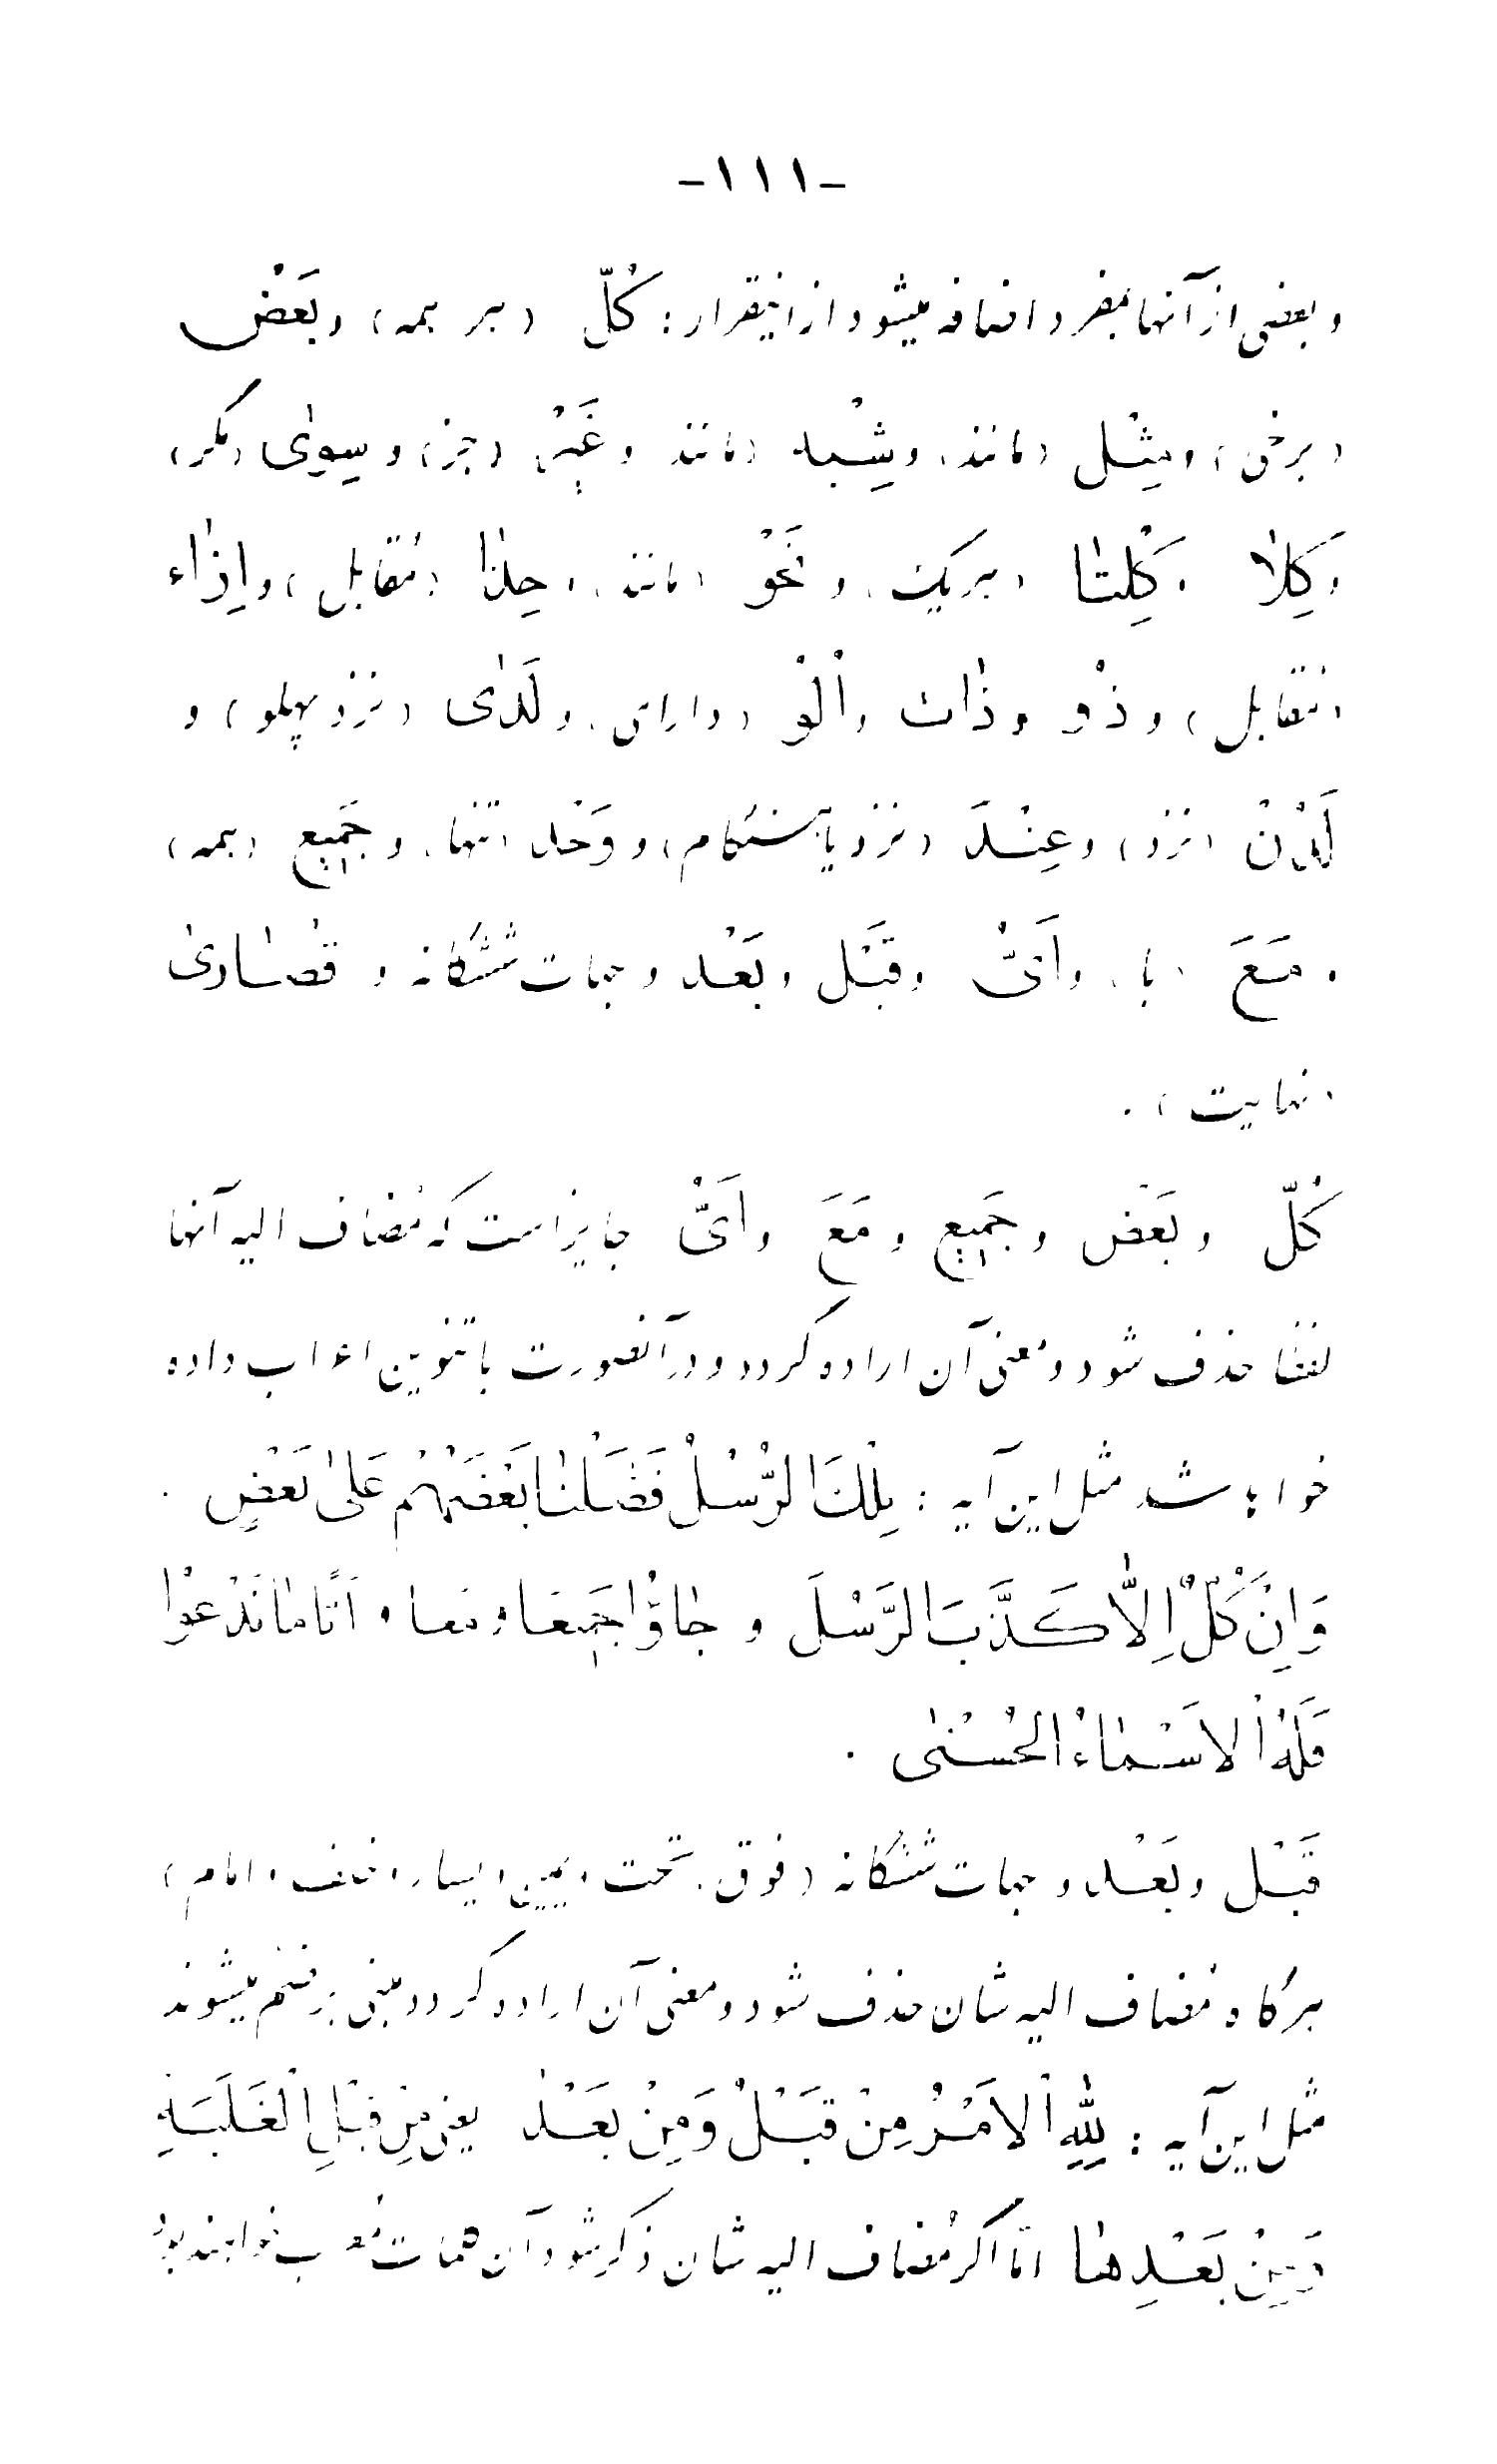 -۱۱۱-
و بعضی از آنها بمفرد اضافه میشود از اینقرار : کُلّ (هر همه) و بَعْض
(برخی) و مِثْل (مانند) و شِبْه (مانند) و غَیْر (جز) و سِویٰ (مگر)
و کِلاٰ و کِلْتٰا (هریک) و نَحْو (مانند) و حِذٰا (مقابل) و اِزٰاء
(مقابل) و ذُو و ذٰات و اُلُو (دارای) و لَدٰی (نزد پهلو) و
لَدُنْ (نزد) و عِنْدَ (نزد یا هنگام) و وَحْد (تنها) و جَمیع (همه)
و مَعَ (با) و اَیّ و قَبْل و بَعْد و جهات ششگانه و قُصٰاریٰ
(نهایت) .
کُلّ و بَعْض و جَمیع و مَعَ و اَیّ جایز است که مُضاف الیه آنها
لفظا حذف شود و معنی آن اراده گردد و در آنصورت با تنوین اعراب داده
خواهد شد مثل این آیه : تِلْكَ الرُّسُلُ فَضَّلْنٰا بَعْضَهُمْ عَلیٰ بَعْضٍ .
وَ اِنْ کُلٌّ اِلاّٰ کَذَّبَ الرُّسُلَ و جٰاؤُا جَمیعًا و مَعاً و اَیًّا مٰا تَدْعُوا
فَلَهُ اْلاَسْمٰاءُ الْحُسْنیٰ .
قَبْل و بَعْد و جهات ششگانه (فوق و تحت و یمین و یسار و خلف و امام)
هرگاه مُضاف الیه شان حذف شود و معنی آن اراده گردد مبنی بر ضم میشوند
مثل این آیه : لِلّٰهِ اْلاَمْرُ مِنْ قَبْلُ وَ مِنْ بَعْدُ یعنی مِنْ قَبْلِ الْغَلَبَةِ
وَ مِنْ بَعْدِهٰا امّا اگر مُضاف الیه شان ذکر شود آن کلمات مُعرب خواهند بود